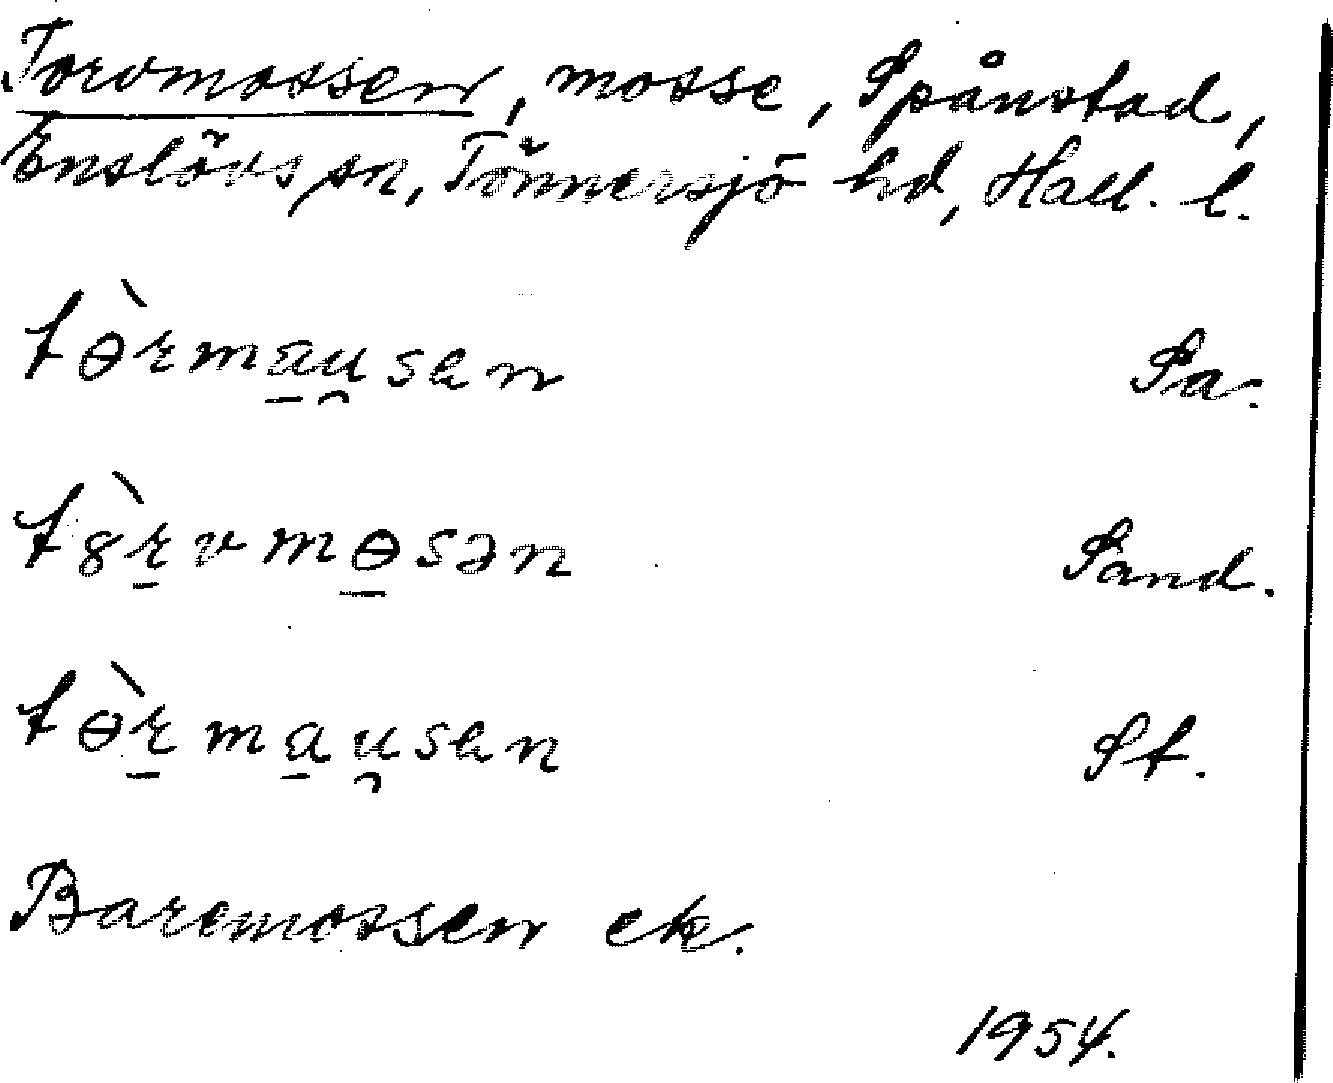 Torvmossen, mosse, Spånstad,
Enslövs sn, Tönnersjö hd, Hall. l.
tɵ̀rma̠u̯sen Sa.
t8̀r̠vmɵ̠sən Sand.
tɵ̀r̠ma̠u̯sen St.
Baremossen ek.
1954.